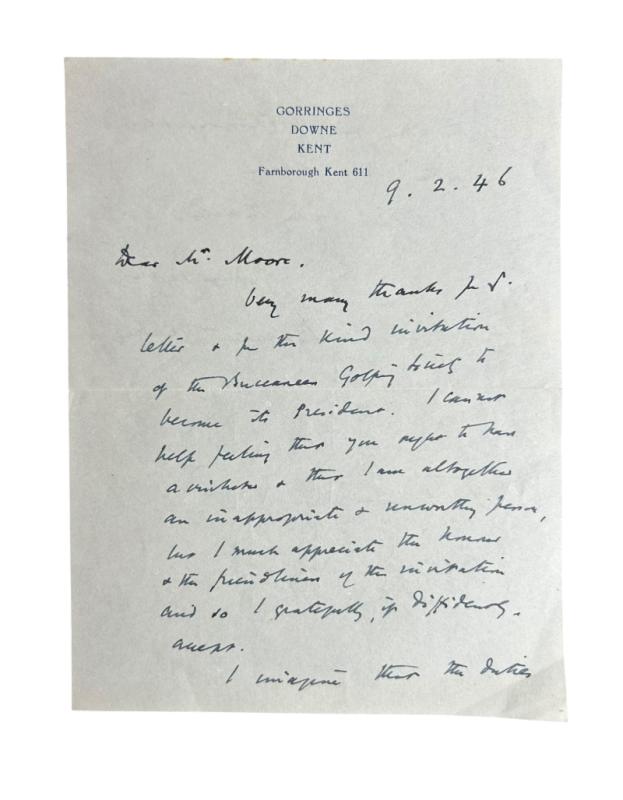 GORRINGES
DOWNE
KENT
Farnborough Kent 611
9. 2. 46
Dear Mr. Moore.
Very many thanks for yr.
letter & for the kind invitation
of the Buccaneer Golfing Society to
become its President. I cannot
help feeling that you ought to have
a cricketer & that I am altogether
an inappropriate & unworthy person,
but I much appreciate the honour
& the friendliness of the invitation
and so I gratefully, if diffidently,
accept.
I imagine that the duties